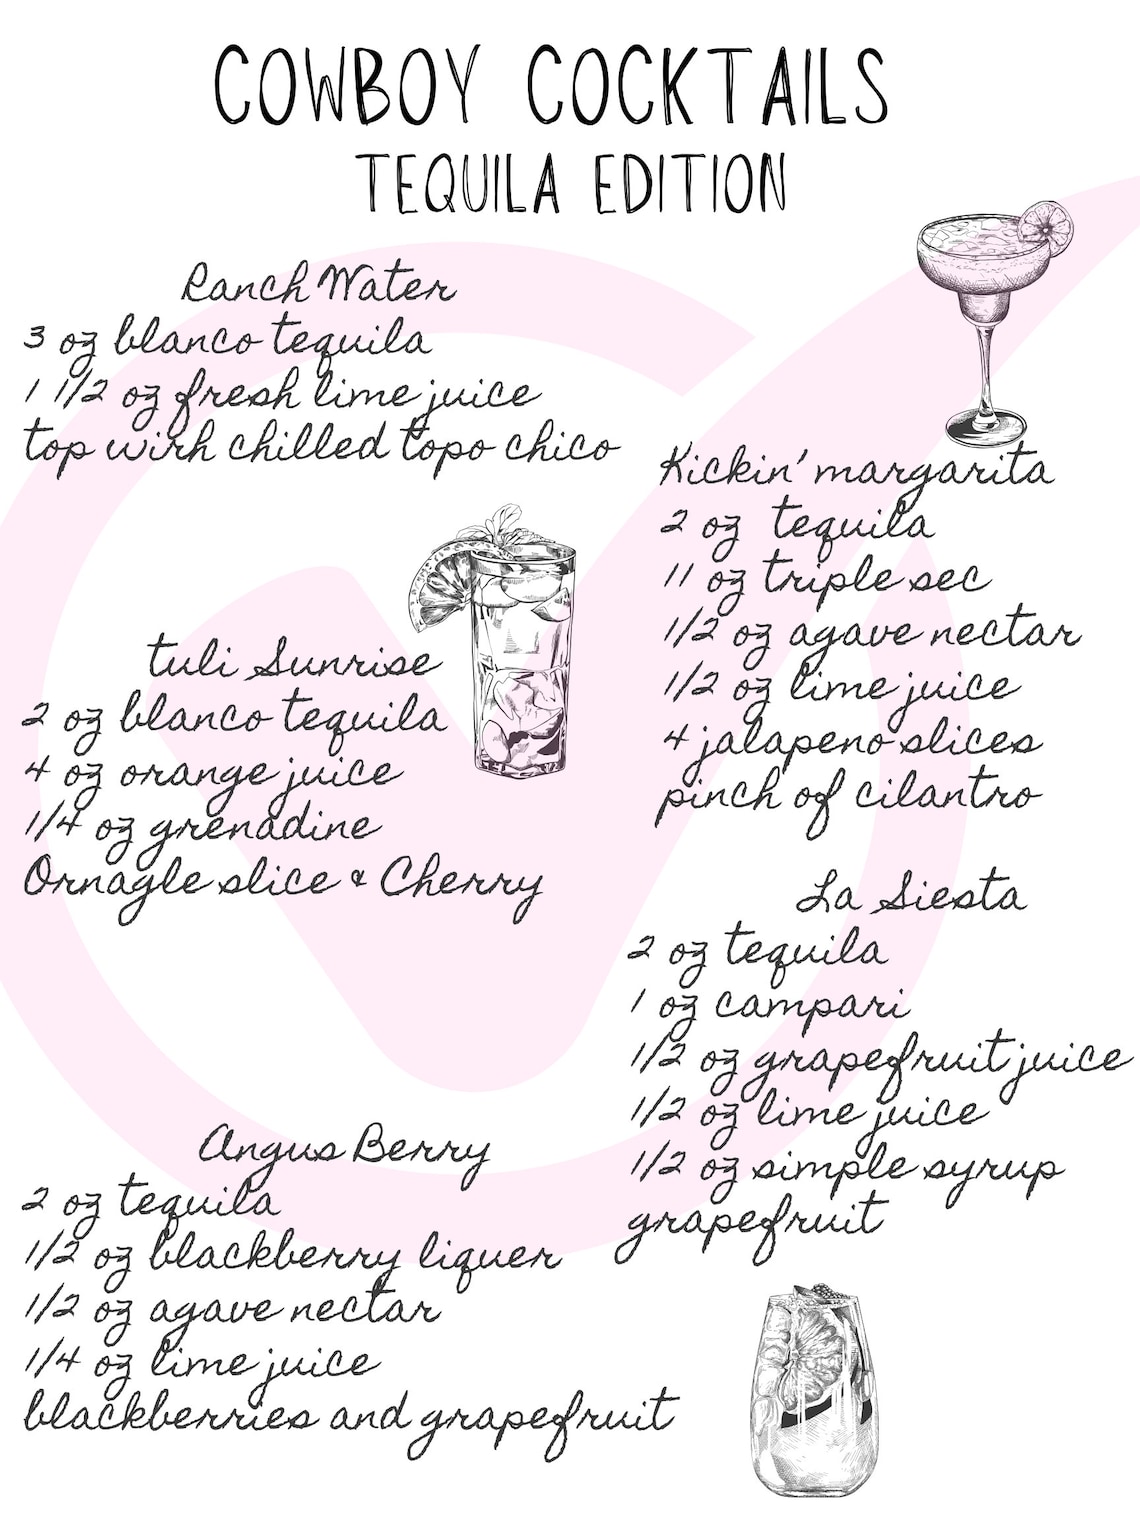 COWBOY COCKTAILS
TEQUILA EDITION
Ranch Water
3 oz blanco tequila
1 1/2 oz fresh lime juice
top wirh chilled topo chico
Kickin' margarita
2 oz tequila
11 oz triple sec
1/2 oz agave nectar
1/2 oz lime juice
4 jalapeno slices
pinch of cilantro
tuli Sunrise
2 oz blanco tequila
4 oz orange juice
1/4 oz grenadine
Ornagle slice & Cherry
La Siesta
2 oz tequila
1 oz campari
1/2 oz grapefruit juice
1/2 oz lime juice
1/2 oz simple syrup
grapefruit
Angus Berry
2 oz tequila
1/2 oz blackberry liquer
1/2 oz agave nectar
1/4 oz lime juice
blackberries and grapefruit